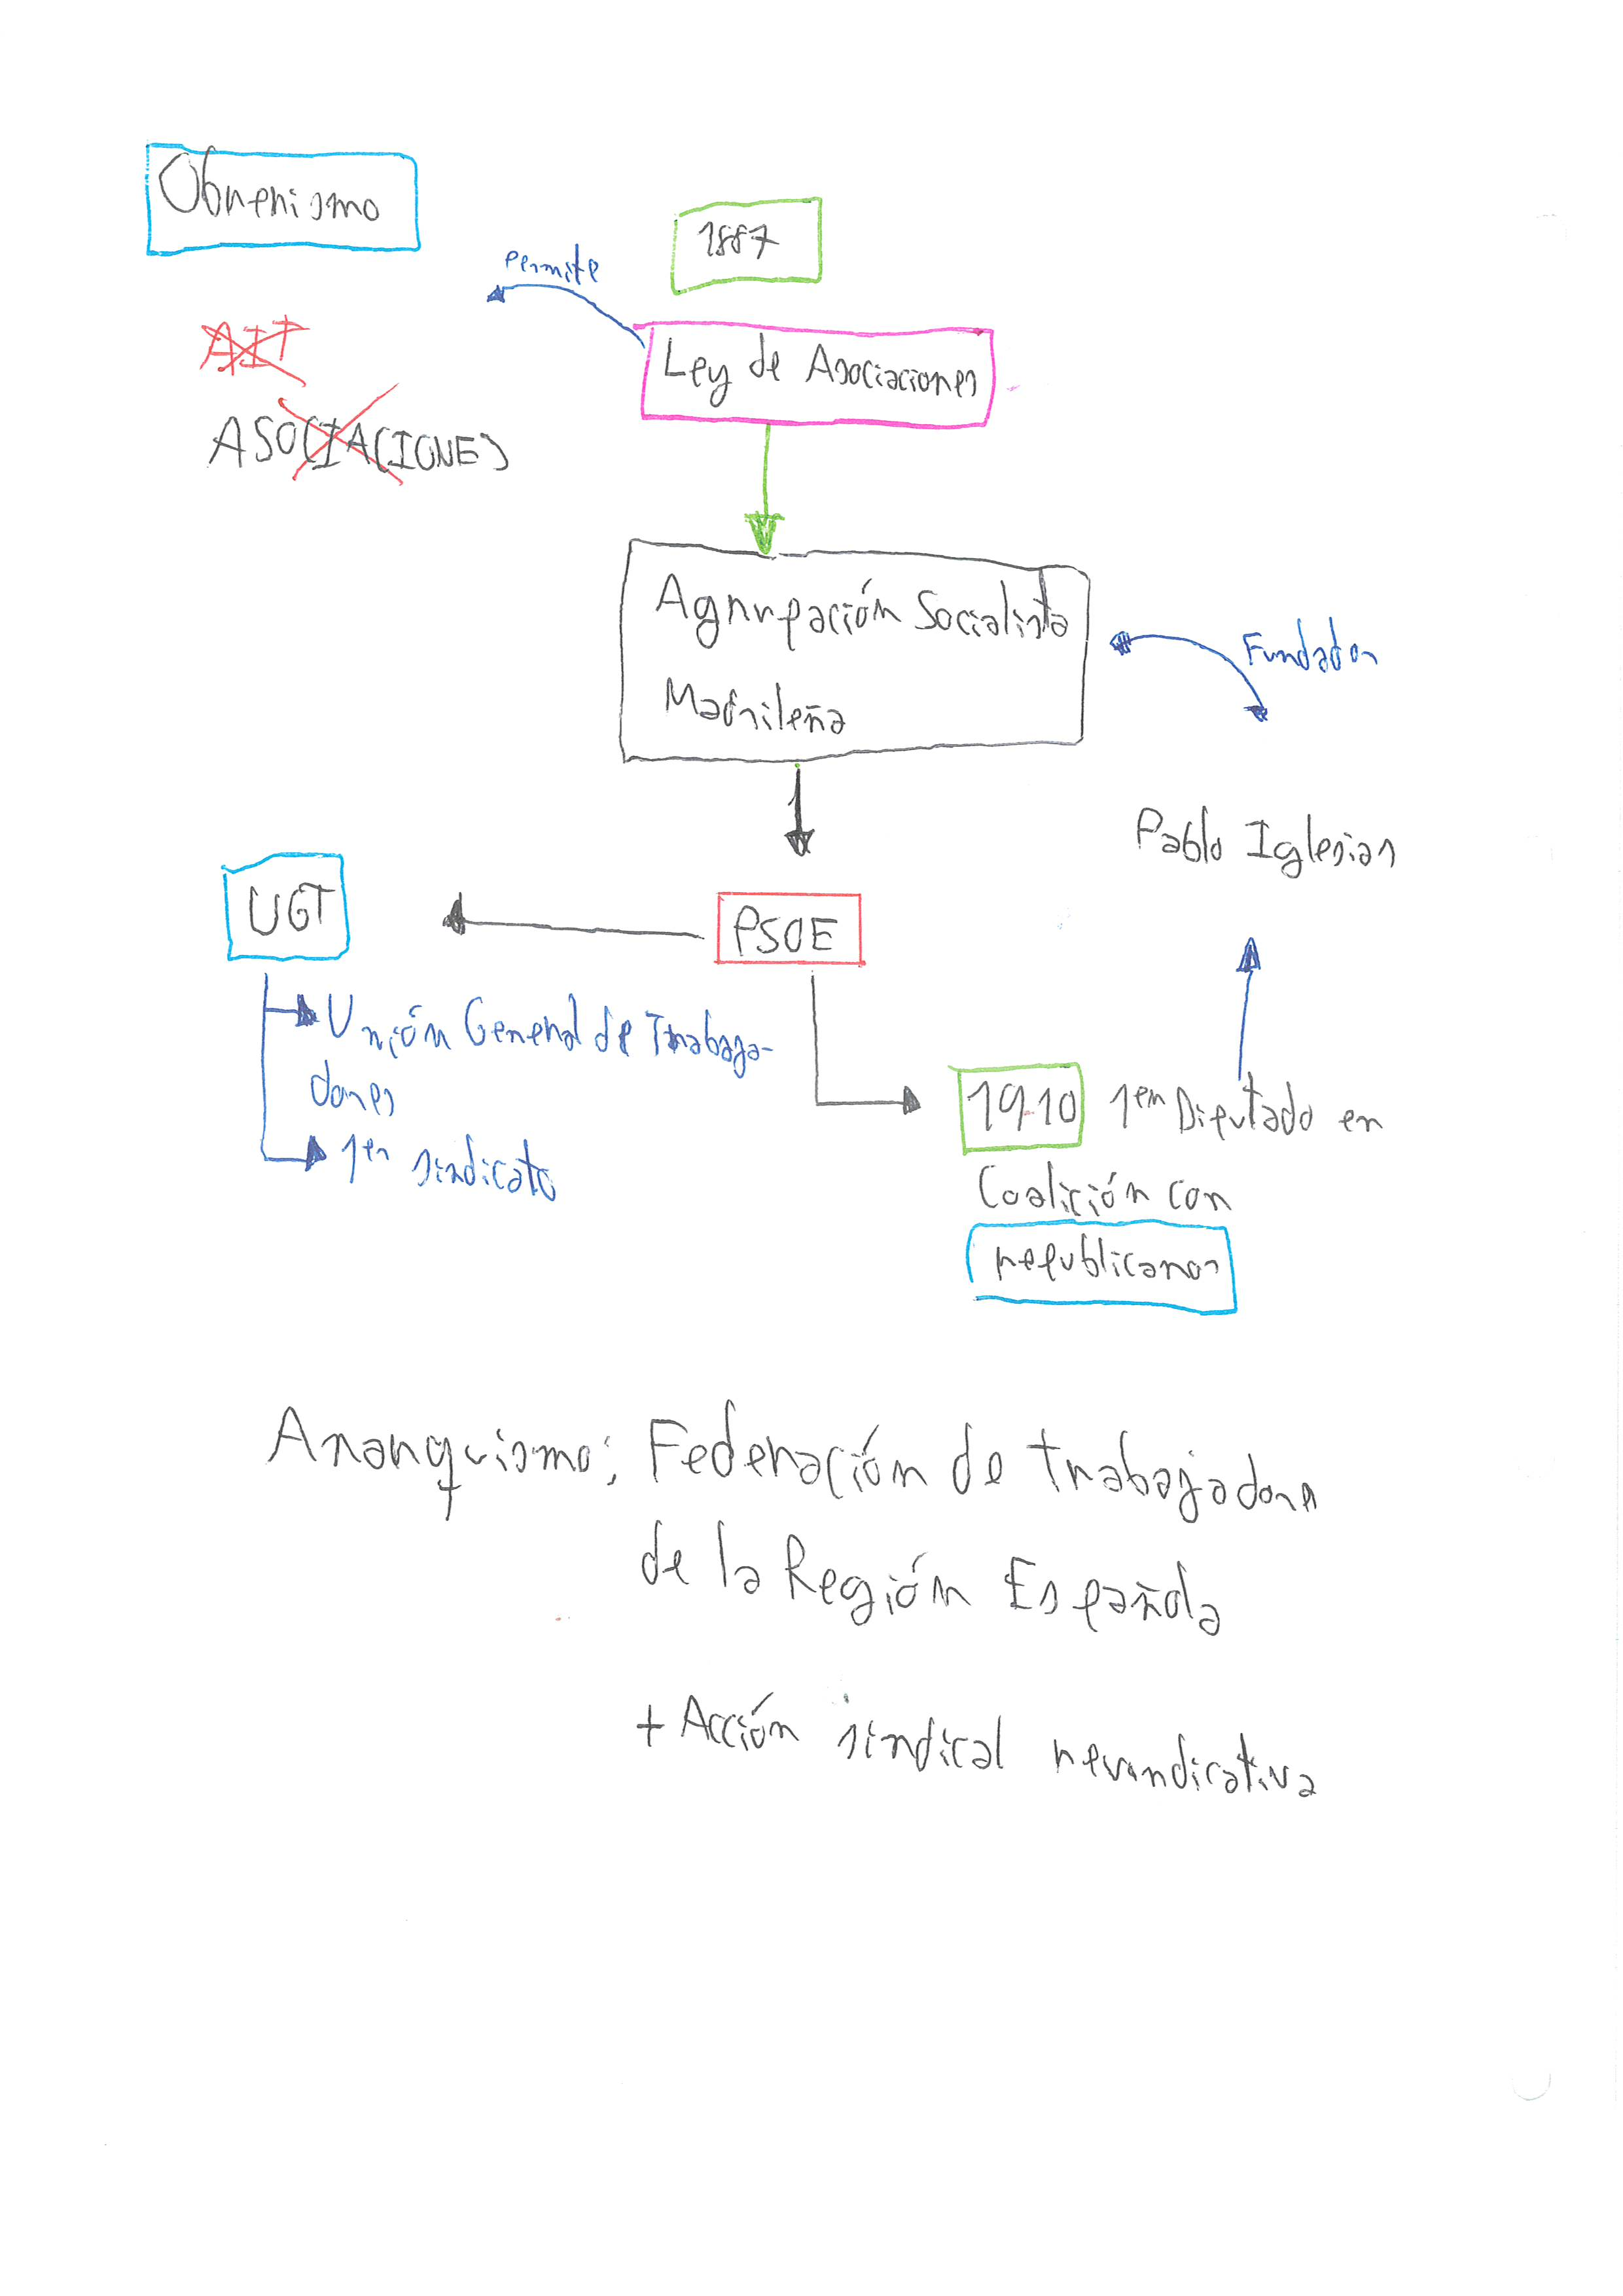 Obrerismo
1887
permite
AIT
Ley de Asociaciones
ASOCIACIONES
Agrupación Socialista
Madrileña
Fundador
Pablo Iglesias
UGT
PSOE
Unión General de Trabaja-
dores
1er sindicato
1910 1er Diputado en
Coalición con
republicanos
Anarquismo: Federación de trabajadores
de la Región Española
+ Acción sindical reivindicativa